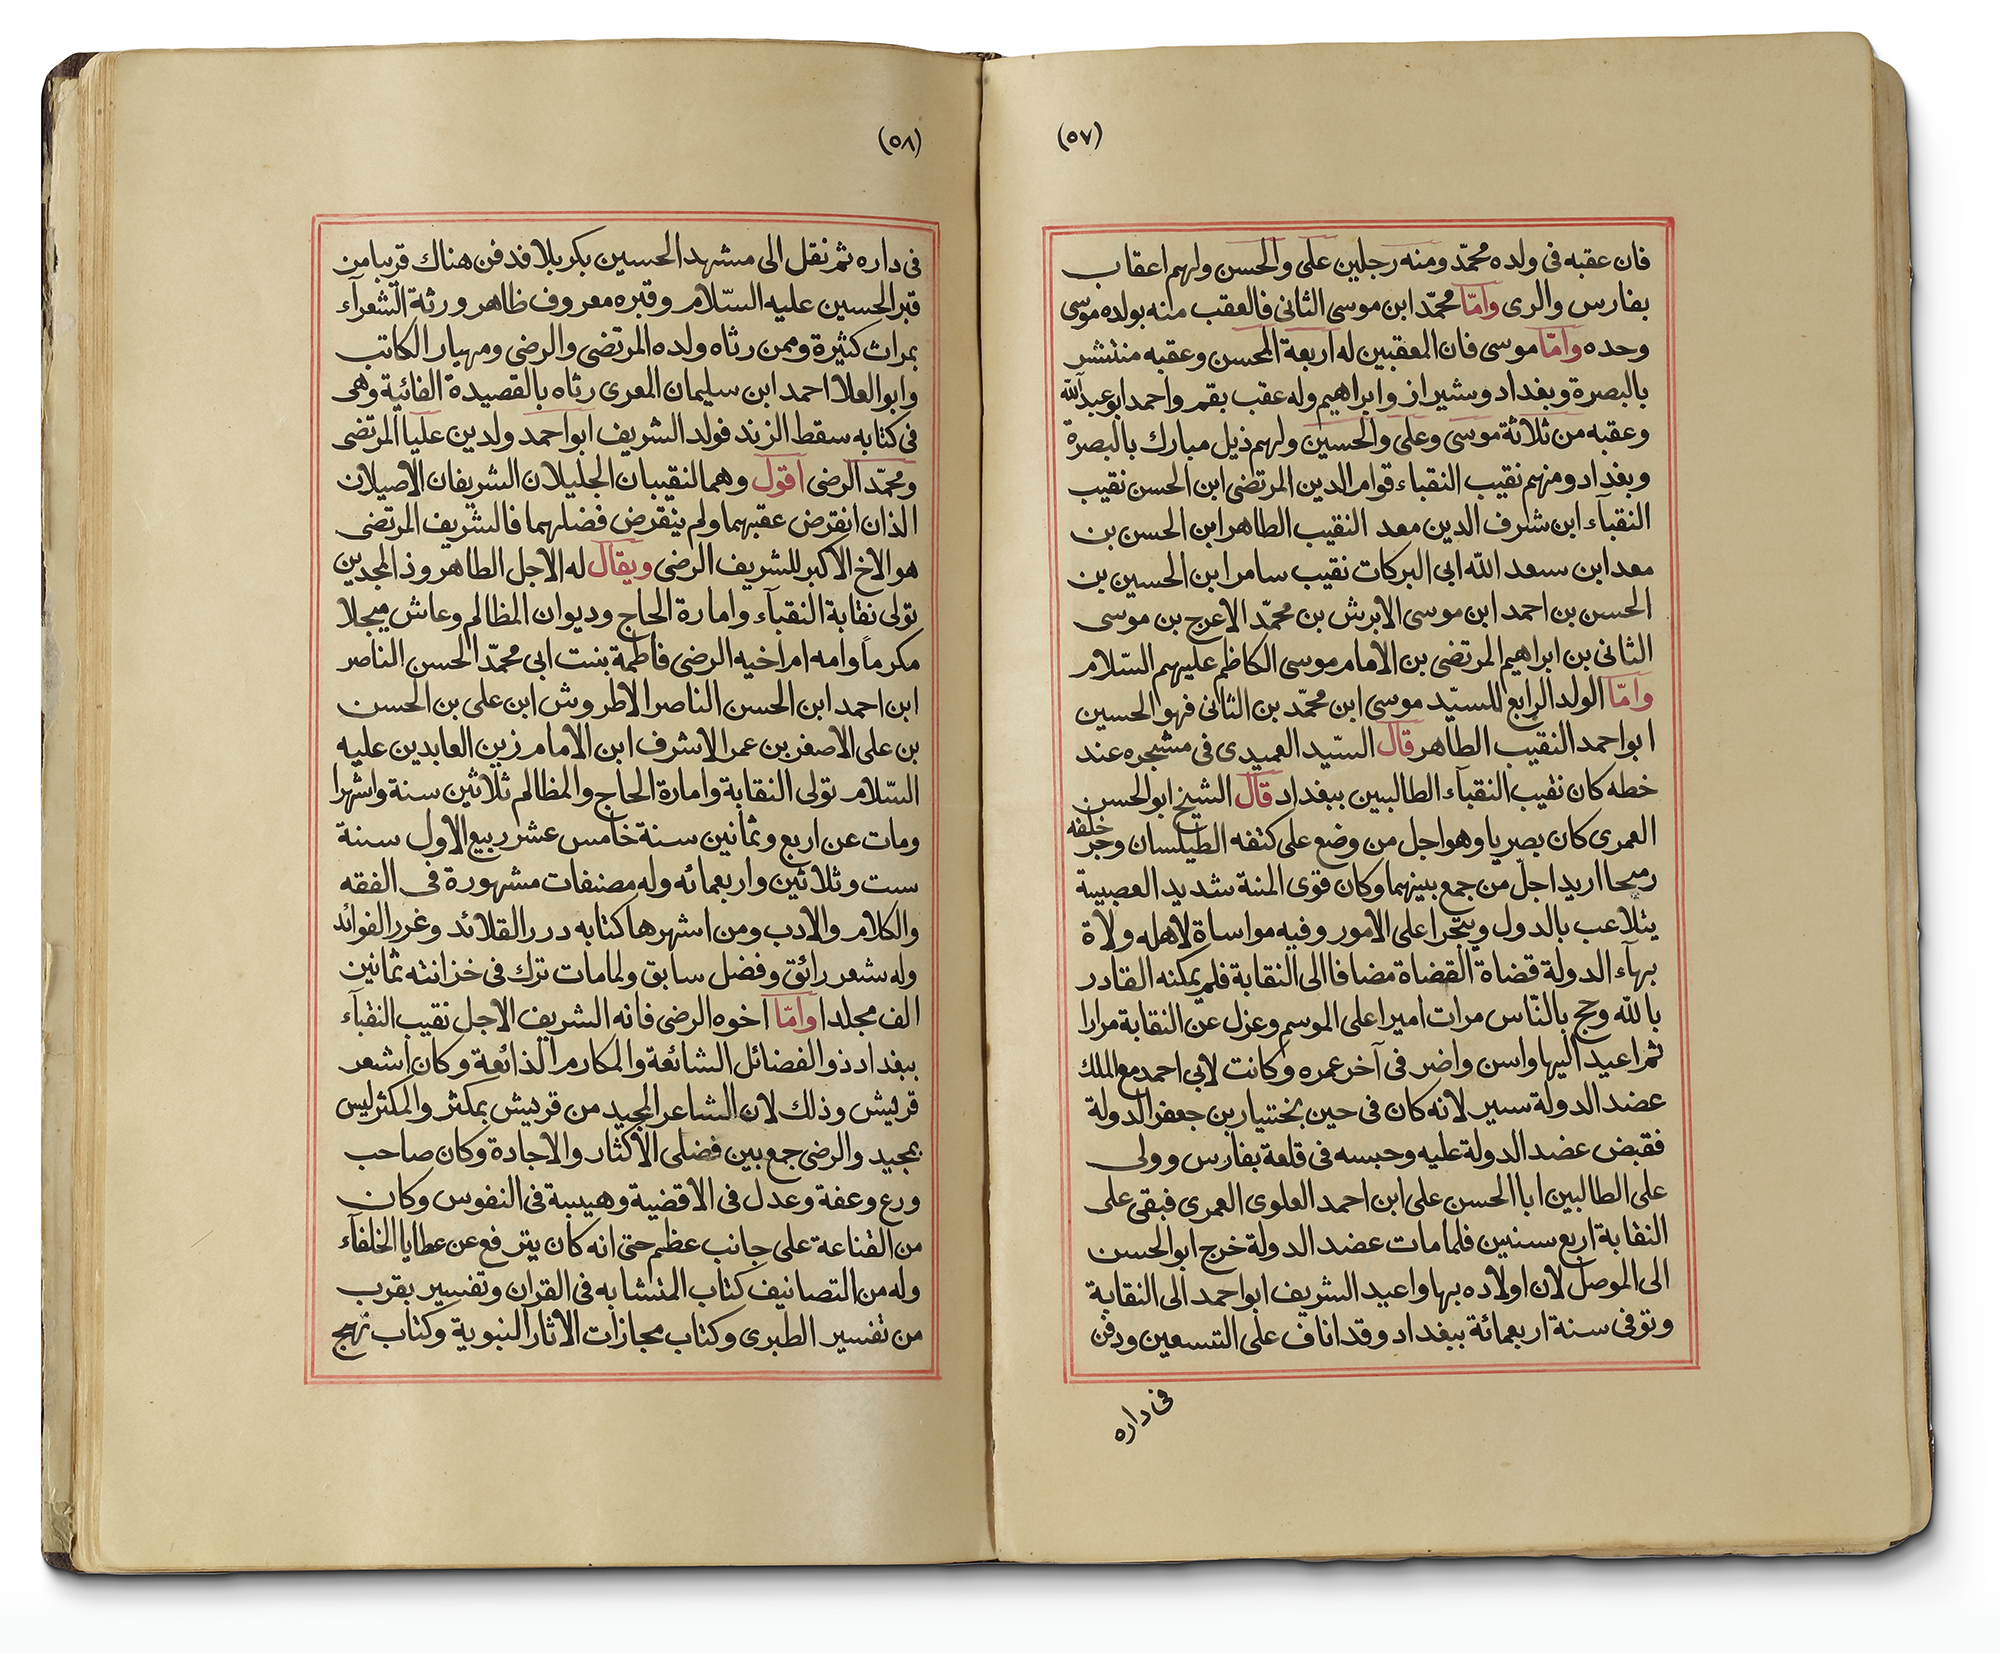 (٥٧)
فان عقبه فى ولده محمّد ومنه رجلين على والحسن ولهم اعقاب
بفارس والرى وامّا محمّد ابن موسى الثانى فالعقب منه بولده موسى
وحده وامّا موسى فان المعقبين له اربعة المحسن وعقبه منتشر
بالبصرة وبغداد وشيراز وابراهيم وله عقب بقم واحمد ابو عبدالله
وعقبه من ثلاثة موسى وعلى والحسين ولهم ذيل مبارك بالبصرة
وبغداد ومنهم نقيب النقباء قوام الدين المرتضى ابن الحسن نقيب
النقبآء ابن شرف الدين معد النقيب الطاهر ابن الحسن بن
معد ابن سعد الله ابى البركات نقيب سامرا ابن الحسين بن
الحسن بن احمد ابن موسى الابرش بن محمّد الاعرج بن موسى
الثانى بن ابراهيم المرتضى بن الامام موسى الكاظم عليهم السّلام
وامّا الولد الرابع للسيّد موسى ابن محمّد بن الثانى فهو الحسين
ابو احمد النقيب الطاهر قال السيّد العميدى فى مشجره عند
خطه كان نقيب النقبآء الطالبيين ببغداد قال الشيخ ابو الحسن
العمرى كان بصريا وهو اجل من وضع على كتفه الطيلسان وجر خلفه
رمحا اريد اجلّ من جمع بينهما وكان قوى المنة شديد العصبية
يتلاعب بالدول ويتجرا على الامور وفيه مواساة لاهله ولاة
بهآء الدولة قضاة القضاة مضافا الى النقابة فلم يمكنه القادر
بالله وحج بالنّاس مرات اميرا على الموسم وعزل عن النقابة مرارا
ثم اعيد اليها واسن واضر فى آخر عمره وكانت لابى احمد مع الملك
عضد الدولة سير لانه كان فى حين بختيار بن جعفر الدولة
فقبض عضد الدولة عليه وحبسه فى قلعة بفارس وولى
على الطالبين ابا الحسن على ابن احمد العلوى العمرى فبقى على
النقابة اربع سنين فلما مات عضد الدولة خرج ابو الحسن
الى الموصل لان اولاده بها واعيد الشريف ابو احمد الى النقابة
وتوفى سنة اربعمائة ببغداد وقد اناف على التسعين ودفن
فى داره
(٥٨)
فى داره ثم نقل الى مشهد الحسين بكربلا فدفن هناك قريبا من
قبر الحسين عليه السّلام وقبره معروف ظاهر ورثة الشعرآء
بمراث كثيرة وممن رثاه ولده المرتضى والرضى ومهيار الكاتب
وابو العلا احمد ابن سليمان المعرى رثاه بالقصيدة الفائية وهى
فى كتابه سقط الزند فولد الشريف ابو احمد ولدين عليا المرتضى
ومحمّد الرضى اقول وهما النقيبان الجليلان الشريفان الاصيلان
الذان انقرض عقبهما ولم ينقرض فضلهما فالشريف المرتضى
هو الاخ الاكبر للشريف الرضى ويقال له الاجل الطاهر وذ المجدين
تولى نقابة النقبآء وامارة الحاج وديوان المظالم وعاش مبجلا
مكرماً وامه ام اخيه الرضى فاطمة بنت ابى محمّد الحسن الناصر
ابن احمد ابن الحسن الناصر الاطروش ابن على بن الحسن
بن على الاصغر بن عمر الاشرف ابن الامام زين العابدين عليه
السّلام تولى النقابة وامارة الحاج والمظالم ثلاثين سنة واشهرا
ومات عن اربع وثمانين سنة خامس عشر ربيع الاول سنة
ست وثلاثين واربعمائه وله مصنفات مشهورة فى الفقه
والكلام والادب ومن اشهرها كتابه درر القلائد وغرر الفوائد
وله شعر رائق وفضل سابق ولمامات ترك فى خزانته ثمانين
الف مجلدا وامّا اخوه الرضى فانه الشريف الاجل نقيب النقبآء
ببغداد ذو الفضائل الشائعة والمكارم الذائعة وكان اشعر
قريش وذلك لان الشاعر المجيد من قريش بمكثر والمكثر ليس
بمجيد والرضى جمع بين فضلى الاكثار والاجادة وكان صاحب
ورع وعفة وعدل فى الاقضية وهيبة فى النفوس وكان
من القناعة على جانب عظم حتى انه كان يترفع عن عطايا الخلفآء
وله من التصانيف كتاب المتشابه فى القران وتفسير بقرب
من تفسير الطبرى وكتاب مجازات الاثار النبوية وكتاب نهج